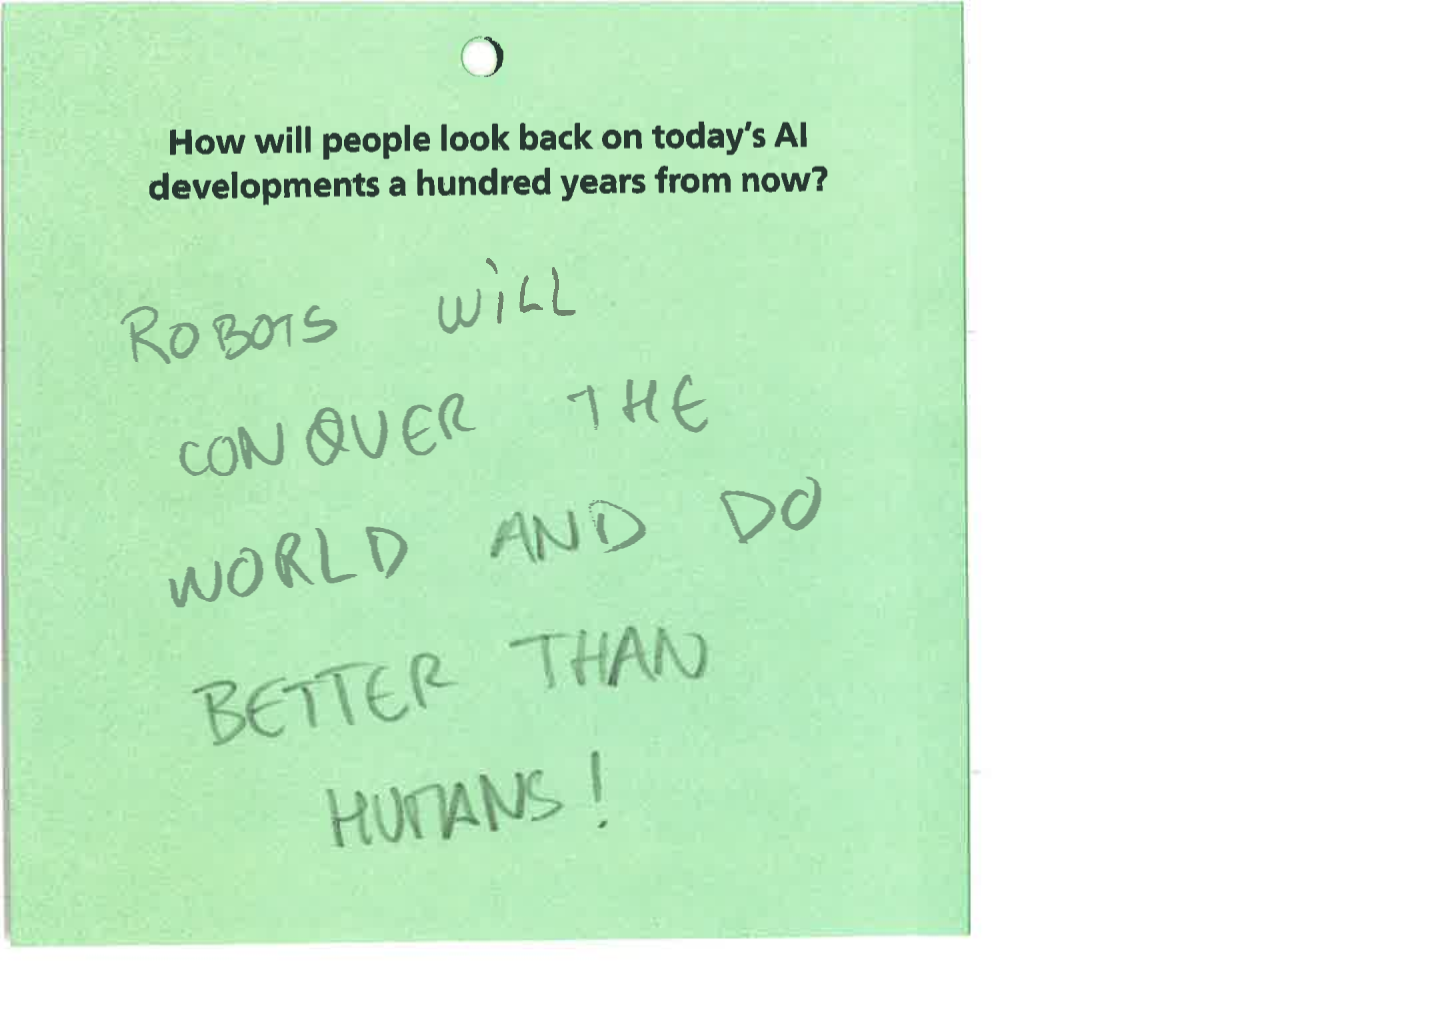 How will people look back on today's AI
developments a hundred years from now?
ROBOTS WILL
CONQUER THE
WORLD AND DO
BETTER THAN
HUMANS!